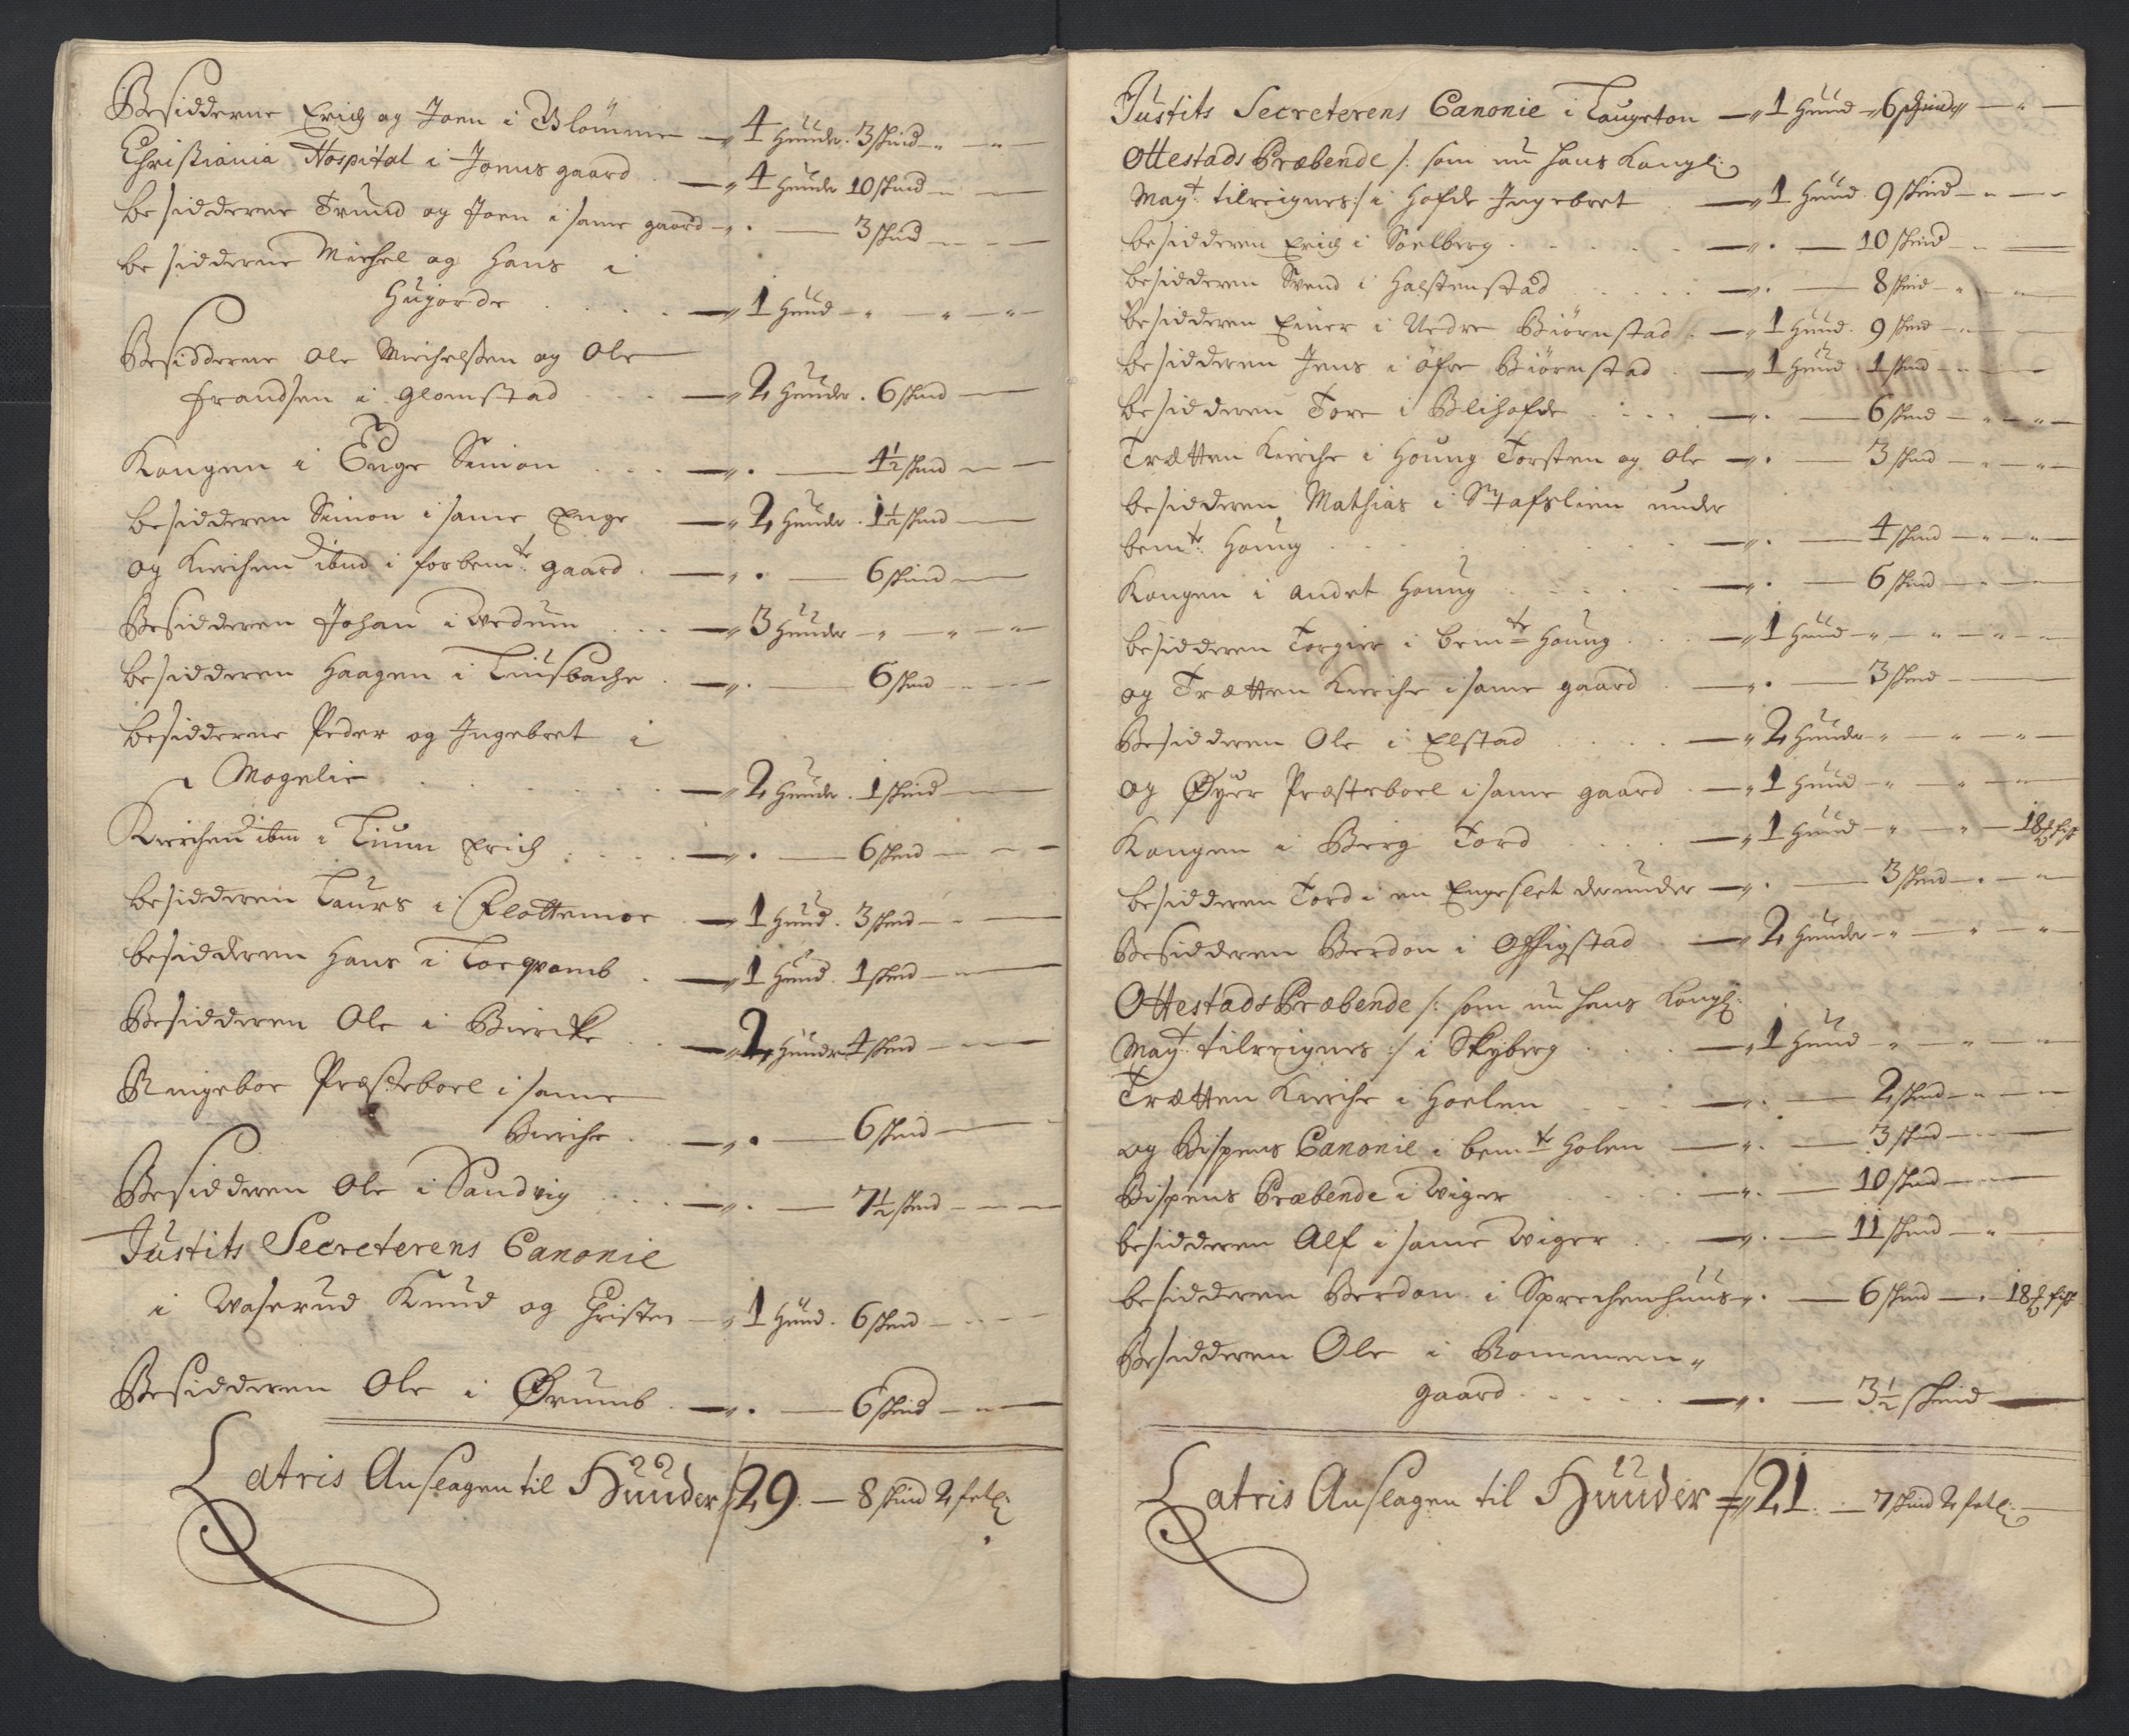 Besidderne Erich og Joen i Blömme — 4 Huuder. 3 skind
Christiania Hospital i Jonus gaard — 4 Huuder 10 skind
besidderne Trund og Joen i same gaard — 3 skind
besidderne Michel og Hans i
Hujorde — 1 Huud
Besidderne Ole Michelsen og Ole
Frandsen i Glomstad — 2 Huuder. 6 skind
Kongen i Enge Simon — 4½ skind
besidderen Simon i same Enge — 2 Huuder. 1½ skind
og Kierchen ibnd i forbemte: gaard — 6 skind
Besidderen Johan i Wedum — 3 Huuder
besidderen Haagen i Liusbache — 6 skind
besidderne Peder og Ingebret i
Mogelie — 2 Huuder. 1 skind
Kierchen ibm i Tium Erich — 6 skind
besidderen Laurs i Flottemoe — 1 Huud. 3 skind
besidderen Hans i Losqvamb — 1 Huud. 1 skind
Besidderen Ole i Biercke — 2 Huuder 4 skind
Ringeboe Præsteboel i same
Bierche — 6 skind
Besidderen Ole i Sandvig — 7½ skind
Justits Secreterens Canonie
i Waserud Knud og Christen — 1 Huud. 6 skind
Besidderen Ole i Ørumb — 6 skind
Latris Anslagen til Huuder 29. — 8 skind 2 fell:
Justits Secreterens Canonie i Taugston — 1 Huud 6 skind
Ottestads Præbende /: som nu hans Kongl:
Mayt: tilreignes :/ i Hofde Ingebret — 1 Huud. 9 skind
besidderen Erich i Soelberg — 10 skind
besidderen Svend i Halstenstad — 8 skind
besidderen Einer i Nedre Biørnstad — 1 Huud. 9 skind
besidderen Jens i öfre Biørnstad — 1 Huud. 1 skind
besidderen Tore i Blihofde — 6 skind
Trætten Kierche i Houng Torsten og Ole — 3 skind
besidderen Mathias i Stafslien under
bemte: Houng — 4 skind
Kongen i andet Houng — 6 skind
besidderen Torgier i bemte Houng — 1 Huud
og Trætten Kierche i same gaard — 3 skind
Besidderen Ole i Elstad — 2 Huuder
og Øyer Præsteboel i same gaard — 1 Huud
Kongen i Berg Tord — 1 Huud — 18 ℔ fisk
besidderen Tord i en Engeslet derunder — 3 skind
Besidderen Berdon i Offigstad — 2 Huuder
Ottestads Præbende /: som nu hans Kongl:
Mayt: tilreignes :/ i Skyberg — 1 Huud
Trætten Kierche i Hoelen — 2 skind
og Bispens Canonie i bemte Holen — 3 skind
Bispens Præbende i Wiger — 10 skind
besidderen Alf i same Wiger — 11 skind
besidderen Berdon i Sprechenhuus — 6 skind — 18 ℔ fisk
Besidderen Ole i Rommen-
gaard — 3½ skind
Latris Anslagen til Huuder 21. — 7 skind 2 fell: